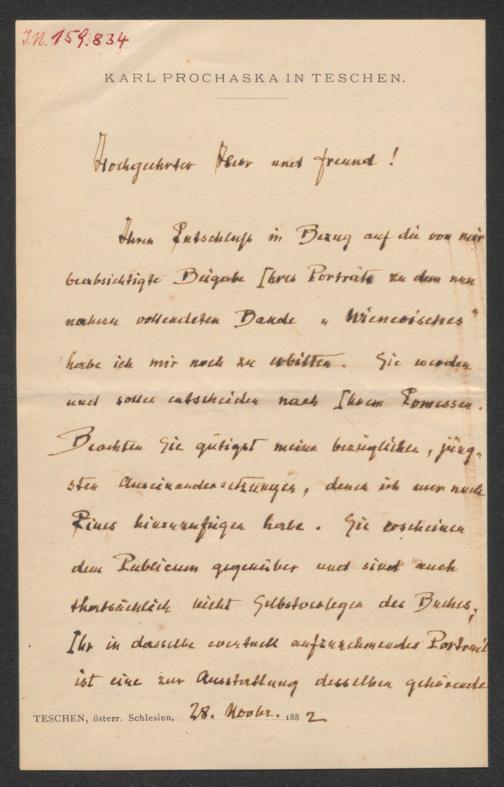 I.N. 159.834
KARL PROCHASKA IN TESCHEN.
Hochgeehrter Herr und Freund!
Ihren Entschluss in Bezug auf die von mir
beabsichtigte Beigabe Ihres Porträts zu dem nun
nahezu vollendeten Bande „Wienerisches"
habe ich mir noch zu erbitten. Sie werden
und sollen entscheiden nach Ihrem Ermessen.
Beachten Sie gütigst meine bezüglichen, jüng-
sten Auseinandersetzungen, denen ich nur noch
Eines hinzuzufügen habe. Sie erscheinen
dem Publicum gegenüber und sind auch
thatsächlich nicht Selbstverleger des Buches;
Ihr in dasselbe eventuell aufzunehmendes Portrait
ist eine zur Ausstattung desselben gehörende
TESCHEN, österr. Schlesien, 28. Novbr. 1882